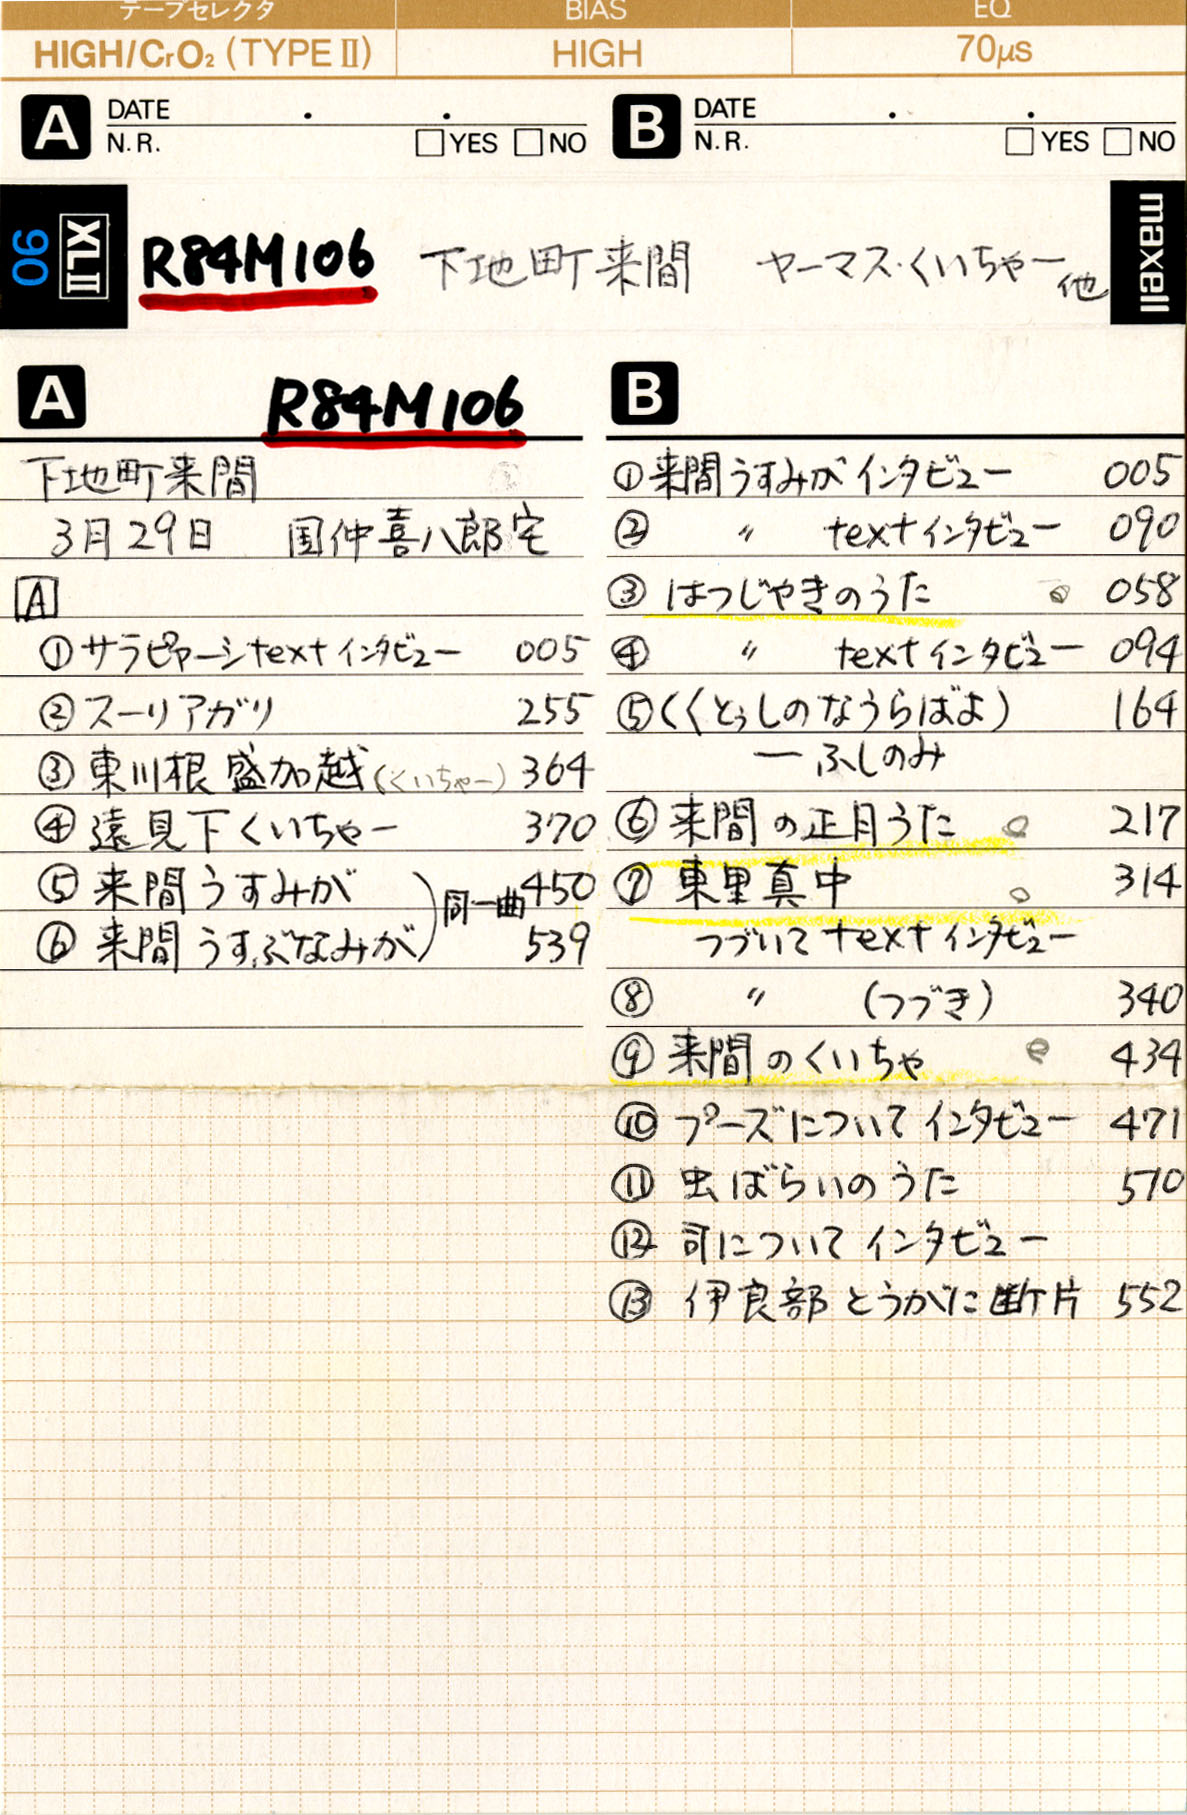 テープセレクタ BIAS EQ
HIGH/CrO₂ (TYPE II) HIGH 70μs
A DATE . . B DATE . .
N.R. □YES □NO N.R. □YES □NO
XLII 90 R84M106 下地町来間 ヤーマス・くいちゃー他 maxell
A R84M106
下地町来間
3月29日 国仲喜八郎宅
A
① サラピャーシtextインタビュー 005
② スーリアガリ 255
③ 東川根盛加越(くいちゃー) 364
④ 遠見下くいちゃー 370
⑤ 来間うすみが 450
同一曲
⑥ 来間うすぶなみが 539
B
① 来間うすみがインタビュー 005
② 〃 textインタビュー 090
③ はつじやきのうた 058
④ 〃 textインタビュー 094
⑤ (くとぅしのなうらばよ) 164
ーふしのみ
⑥ 来間の正月うた 217
⑦ 東里真中 314
つづいてtextインタビュー
⑧ 〃 (つづき) 340
⑨ 来間のくいちゃ 434
⑩ プーズについてインタビュー 471
⑪ 虫ばらいのうた 510
⑫ 司についてインタビュー
⑬ 伊良部とうがに断片 552